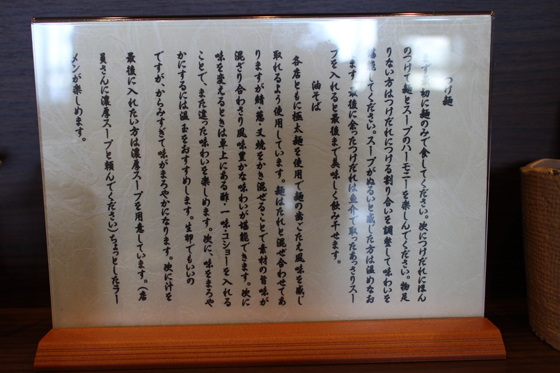 つけ麺
まず最初に麺のみで食してください。次につけだれにほん
のつけて麺とスープのハーモニーを楽しんでください。物足
りない方はつけだれにつける割り合いを調整して味わいを
してください。スープがぬるいと感じた方は温めなお
します。最後に余ったつけだれは魚介で取ったあっさりスー
プを入れると最後まで美味しく飲み干せます。
油そば
各店ともに極太麺を使用で麺の歯ごたえ風味を感じ
取れるよう使用しています。麺はたれと混ぜ合わせてあ
りますが鯖・葱・叉焼をかき混ぜることで素材の旨味が
混ざり合わさり風味豊かな味わいが堪能できます。次に
味を変えるときは卓上にある酢・一味・コショーを入れる
ことで、また違った味わいを楽しめます。次に、味をまろや
かにするには温玉をおすすめします。生卵でもいいの
ですが、からみすぎて味がまろやかになります。次に汁を
最後に入れたい方は濃厚スープを用意しています。（店
員さんに濃厚スープと頼んでください）ちょっとしたラー
メンが楽しめます。